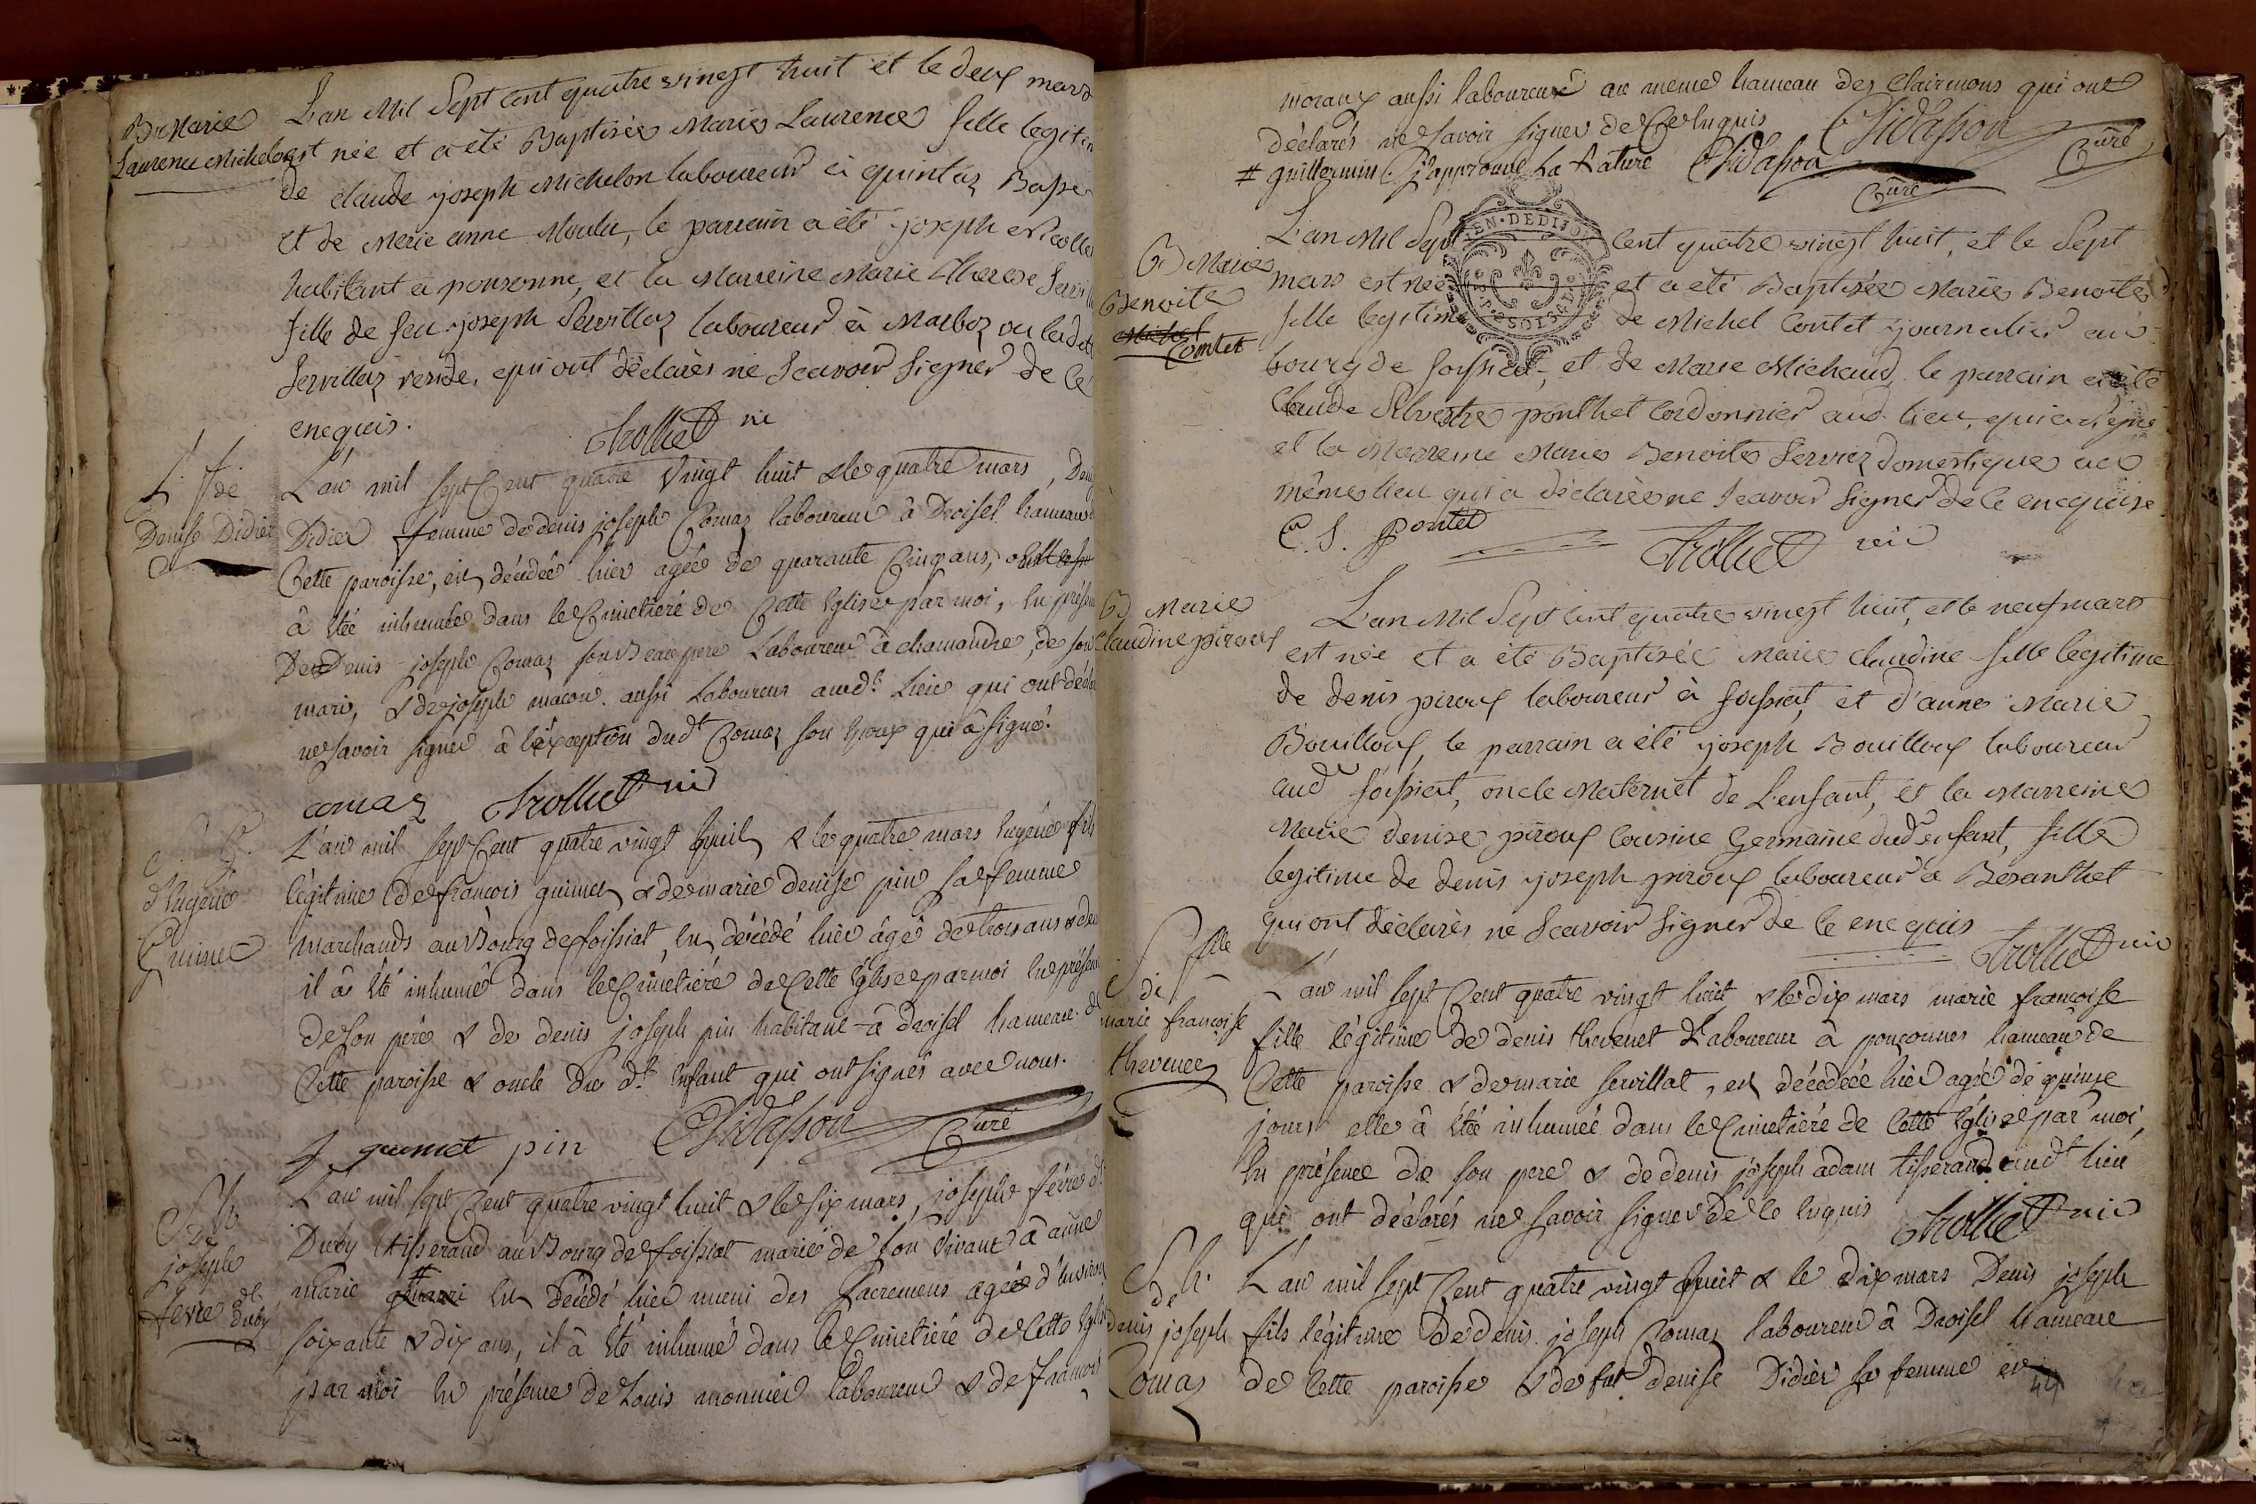 Br Marie
Laurence Michelon
L'an Mil Sept Cent quatre vingt huit et le deux mars
est née et a été Baptisée Marie Laurence fille legitim
de claude joseph Michelon laboureur à quintaz Basse
et de Marie anne Moulu, le parrain a été joseph Nicolle
habitant à ponsonne, et la Marreine Marie Therese
fille de feu joseph Servillaz laboureur à Marboz ou ladte
Servillaz reside, qui ont déclarés ne Scavoir Signer de ce
enequis.
Trolliet vic
de
Denise Didier
L'an mil sept Cent quatre vingt huit & le quatre mars,
Didier femme de denis joseph Comaz laboureur à Droisel hameau
Cette paroisse, est décédée hier agée de quarante Cinq ans,
à été inhumée dans le Cimetiere de Cette Eglise par moi, En présen
De Denis joseph Comaz son Beau pere Laboureur à chamandre, de son
mari, & de joseph macon aussi Laboureur aud.t Lieu qui ont décla
ne savoir signer à l'exception dud.t Comaz son Epoux qui à signé.
comaz Trolliet vic
d'Eugene
Guimet
L'an mil sept Cent quatre vingt huit & le quatre mars Eugene fils
légitime de francois guimet & de marie denise pin sa femme
marchands au Bourg de foissiat est décédé hier âgé de trois ans &
il à été inhumé dans le Cimetiére de Cette Eglise par moi En présen
de son pére & de denis joseph pin habitant à Droisel hameau de
Cette paroisse & oncle du d.t Enfant qui ont signés avec nous.
guimet pin Chidasson Curé
S.h
de
joseph
fevre dt
Duby
L'an mil sept Cent quatre vingt huit & le six mars, joseph févre d.t
Duby tisserand au Bourg de foissiat mariè de son vivant à anne
marie # est décédé hier muni des Sacremens agée d'environ
soixante & dix ans, il à été inhumé dans le Cimetiére de Cette Eglise
par moi En présence de Louis monnier laboureur & de francois
moraux aussi laboureur au meme hameau des Clairmons qui ont
déclarés ne savoir signer de Ce Enquis Chidasson Curé
# guillermin j'approuve la Rature Chidasson
Curé
B Marie
Benoite
Michel
Contet
L'an Mil Sept Cent quatre vingt huit, et le Sept
mars est née et a été Baptisée Marie Benoite
fille legitime de Michel Contet journalier au
bourg de foissiat, et de Marie Michaud, le parrain a été
Claude Silvestre ponthet Cordonnier aud. lieu, qui a signé
et la Marreine Marie Benoite Serviez domestique au
même lieu qui a déclarée ne Scavoir Signer de ce enequise
C. S. pontet
Trolliet vic
B Marie
Claudine piroux
L'an Mil Sept Cent quatre vingt huit, et le neuf mars
est née et a été Baptisée Marie claudine fille legitime
de denis piroux laboureur à foissiat, et d'anne Marie
Bouilloux, le parrain a été joseph Bouilloux laboureur
aud foissiat, oncle Maternel de L'enfant, et la Marreine
Marie denise piroux Cousine Germaine dud enfant, fille
legitime de denis joseph piroux laboureur à Besanthet
qui ont déclarés ne Scavoir Signer de ce enequis
Trolliet vic
S flle
de
marie francoise
thevenet
L'an mil sept Cent quatre vingt huit & le dix mars marie francoise
fille légitime de denis thevenet Laboureur à ponsonnes hameau de
Cette paroisse & de marie servillat, est décédée hier agée de quinze
jours elle à été inhumée dans le Cimetiére de Cette Eglise par moi,
En présence de son pere & de denis joseph adam tisserand aud.t lieu
qui ont déclarés ne savoir signer de Ce Enquis Trolliet vic
S h.
de
denis joseph
Comaz
L'an mil sept Cent quatre vingt huit & le dix mars Denis joseph
fils légitime de denis joseph Comaz laboureur à Droisel hameau
de Cette paroisse & de fut denise Didier sa femme est
44